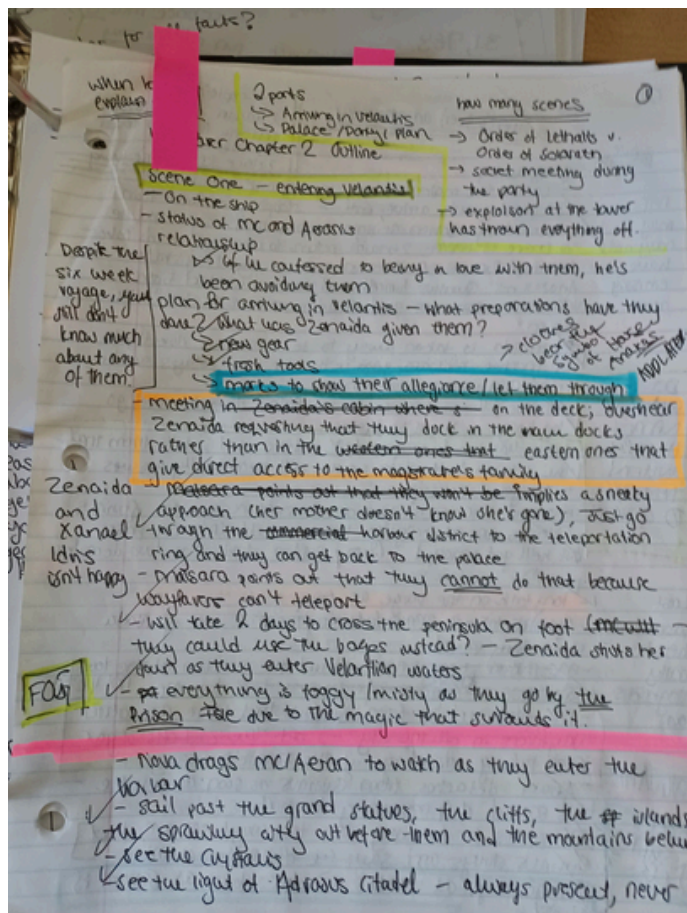 for facts?
When to
explain
2 parts
↳ Arriving in Velantis
↳ Palace / Daryl plan
how many scenes
→ Order of Lethalis v.
Order of Solarath
→ secret meeting during
the party
→ explosion at the tower
has thrown everything off.
①
Chapter 2 Outline
Scene One - entering Velantis
- On the ship
- status of mc and Aeran's
relationship
↳ if he confessed to being in love with them, he's
been avoiding them
Despite the
six week
voyage, you
still don't
know much
about any
of them.
plan for arriving in Velantis - what preparations have they
done? What has Zenaida given them?
↳ new gear
↳ fresh tools
↳ marks to show their allegiance / let them through
→ clothes
bear the
symbol
of
- meeting in Zenaida's cabin where s on the deck; overhear
Zenaida requesting that they dock in the main docks
rather than in the western ones that eastern ones that
give direct access to the magistrate's family
Zenaida
and
Xanael
Idris
isn't happy
- Maisara points out that they won't be implies a sneaky
approach (her mother doesn't know she's gone), just go
through the commercial harbour district to the teleportation
ring and they can get back to the palace
- Maisara points out that they cannot do that because
wayfarers can't teleport
- will take 2 days to cross the peninsula on foot (mc will -
they could use the barges instead? - Zenaida shuts her
down as they enter Velantian waters
FOG
- everything is foggy/misty as they go by the
Prison Isle due to the magic that surrounds it.
- Nova drags mc/Aeran to watch as they enter the
harbour
- sail past the grand statues, the cliffs, the islands
the sprawling city out before them and the mountains
- see the crystals
- see the light of Citadel - always present, never